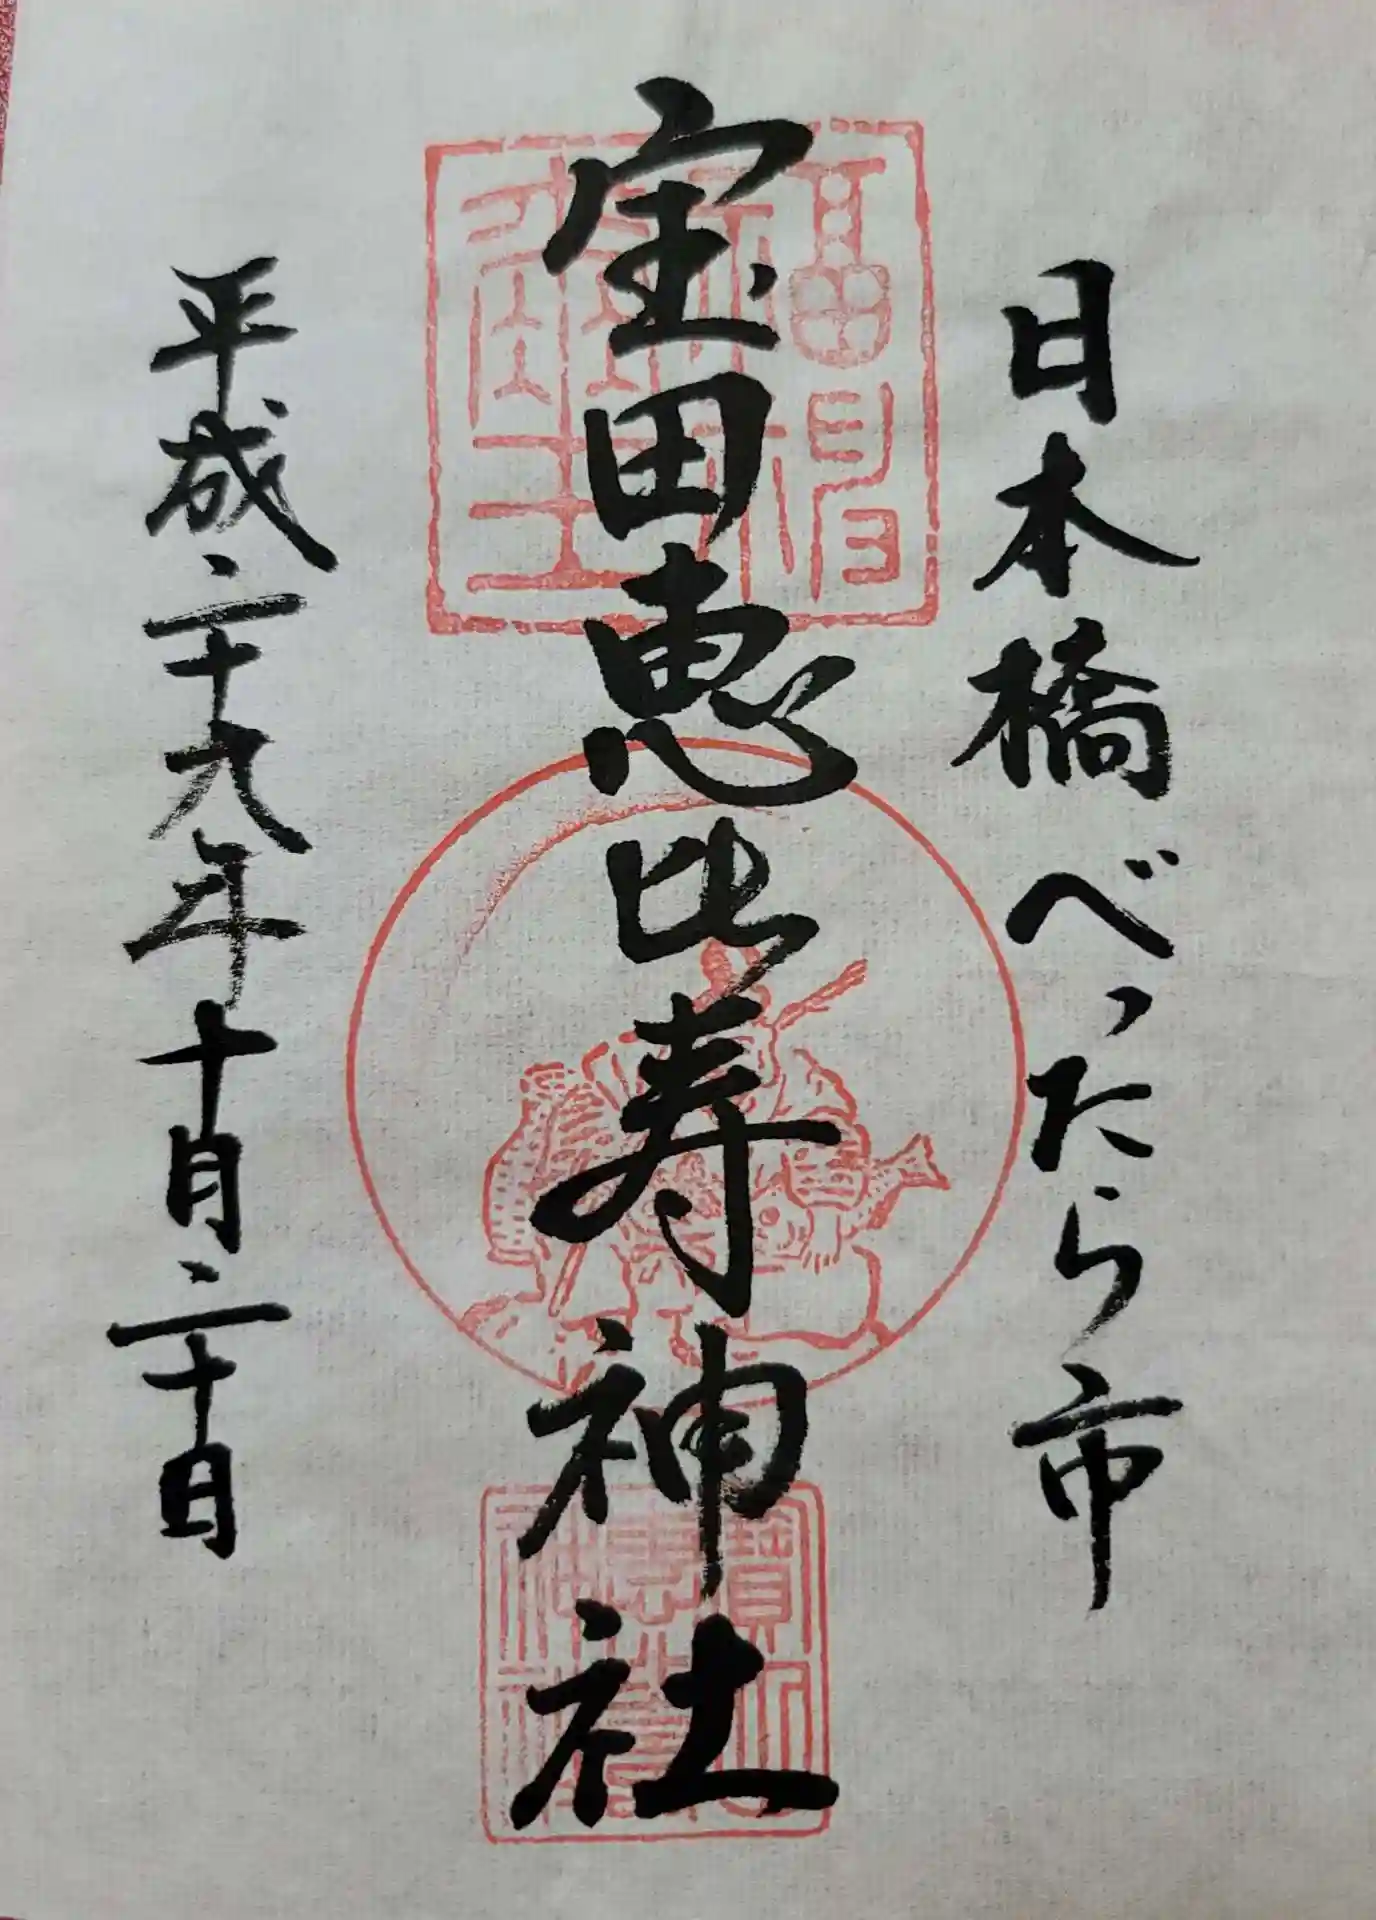 日本橋べったら市
宝田恵比寿神社
平成二十九年十月二十日